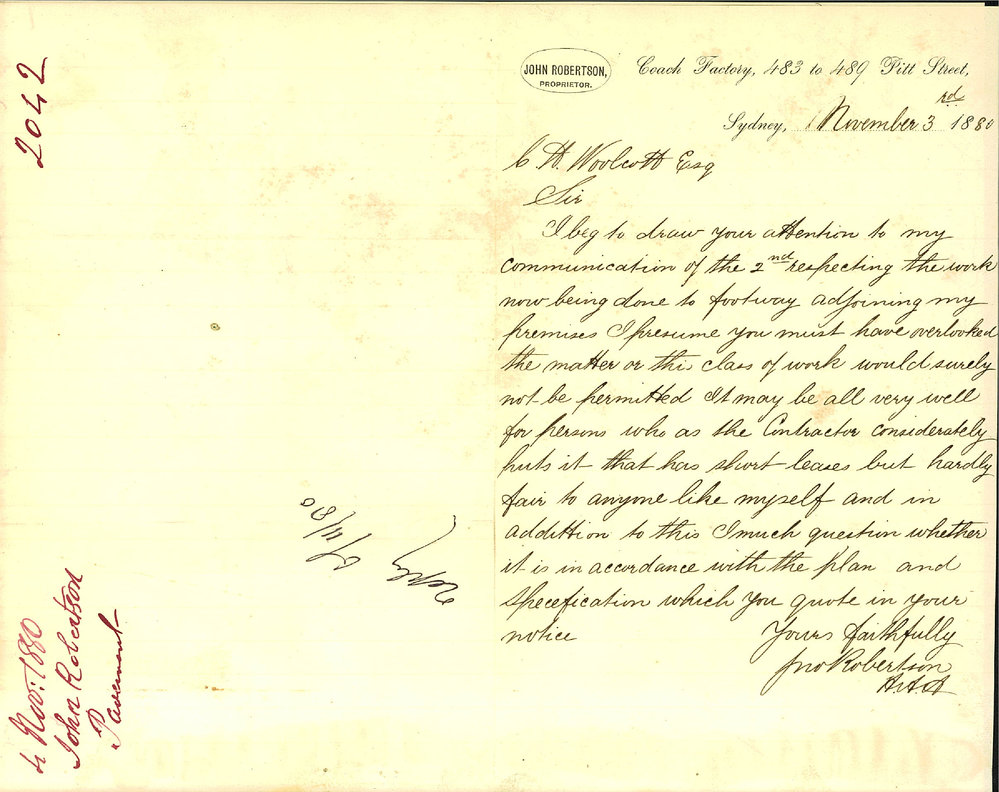 2042
4 Nov: 1880
John Robertson
Pavement
Reply
5/11/80
JOHN ROBERTSON,
PROPRIETOR.
Coach Factory, 483 to 489 Pitt Street,
Sydney, November 3rd 1880
C H. Woolcott Esq
Sir
I beg to draw your attention to my
communication of the 2nd respecting the work
now being done to footway adjoining my
premises I presume you must have overlooked
the matter or this class of work would surely
not be permitted It may be all very well
for persons who as the Contractor considerately
puts it that has short leases but hardly
fair to anyone like myself and in
addittion to this I much question whether
it is in accordance with the plan and
specefication which you quote in your
notice
Yours faithfully
Jno Robertson